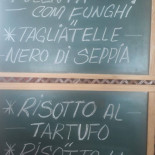 CON FUNGHI
"
* TAGLIATELLE
NERO DI SEPPIA
* RISOTTO AL
TARTUFO
"
* RISOTTO